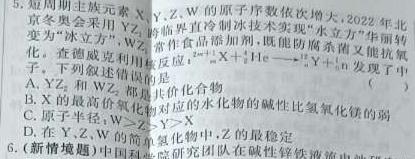 5. 短周期主族元素 X、Y、Z、W 的原子序数依次增大,2022 年北
京冬奥会采用 YZ₂ 跨临界直冷制冰技术实现"水立方"华丽转
变为"冰立方",WZ₂ 常作食品添加剂,既能防腐杀菌又能抗氧
化。查德威克利用核反应:X+⁴₂He→¹²Y+¹₀n 发现了中
子。下列叙述错误的是 ( )
A. YZ₂ 和 WZ₂ 都是共价化合物
B. X 的最高价氧化物对应的水化物的碱性比氢氧化镁的弱
C. 原子半径:W>Z>Y>X
D. 在 Y、Z、W 的简单氢化物中,Z 的最稳定
6. (新情境题)中国科学院研究团队在碱性锌铁液流电池